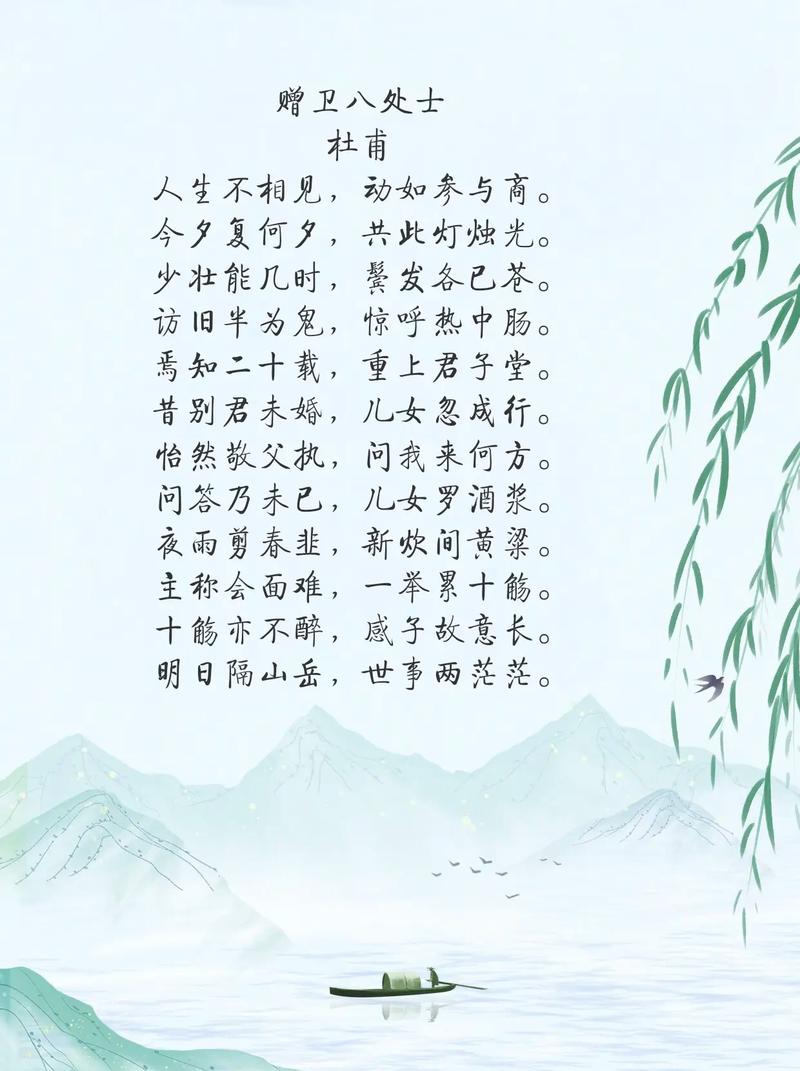 赠卫八处士
杜甫
人生不相见，动如参与商。
今夕复何夕，共此灯烛光。
少壮能几时，鬓发各已苍。
访旧半为鬼，惊呼热中肠。
焉知二十载，重上君子堂。
昔别君未婚，儿女忽成行。
怡然敬父执，问我来何方。
问答乃未已，儿女罗酒浆。
夜雨剪春韭，新炊间黄粱。
主称会面难，一举累十觞。
十觞亦不醉，感子故意长。
明日隔山岳，世事两茫茫。